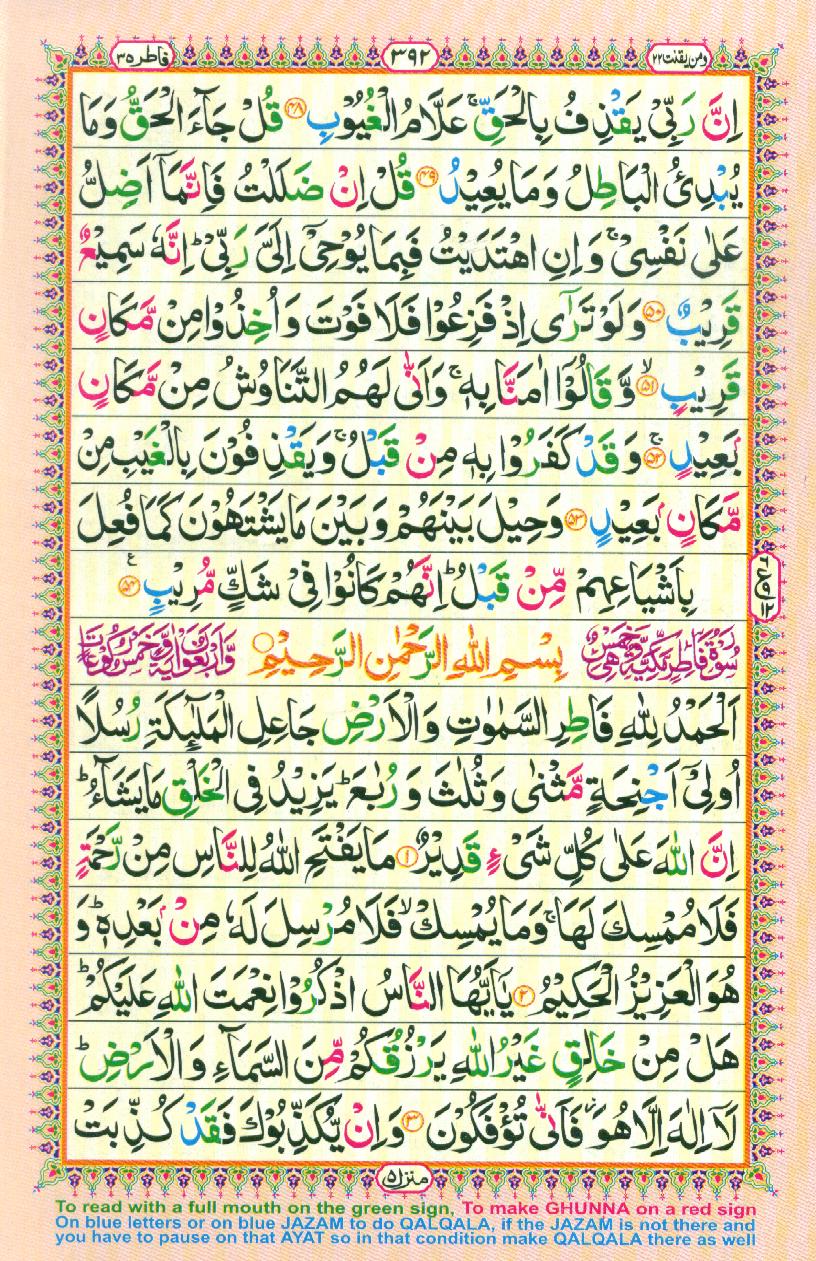 ومن یقنت ۲۲
۳۹۲
فاطر ۳۵
اِنَّ رَبِّیْ یَقْذِفُ بِالْحَقِّ ۚ عَلَّامُ الْغُیُوْبِ ﴿۴۸﴾ قُلْ جَآءَ الْحَقُّ وَمَا
یُبْدِئُ الْبَاطِلُ وَمَا یُعِیْدُ ﴿۴۹﴾ قُلْ اِنْ ضَلَلْتُ فَاِنَّمَاۤ اَضِلُّ
عَلٰی نَفْسِیْ ۚ وَاِنِ اهْتَدَیْتُ فَبِمَا یُوْحِیْۤ اِلَیَّ رَبِّیْ ؕ اِنَّهٗ سَمِیْعٌ
قَرِیْبٌ ﴿۵۰﴾ وَلَوْ تَرٰۤی اِذْ فَزِعُوْا فَلَا فَوْتَ وَاُخِذُوْا مِنْ مَّکَانٍ
قَرِیْبٍ ﴿۵۱﴾ ۙ وَّقَالُوْۤا اٰمَنَّا بِهٖ ۚ وَاَنّٰی لَهُمُ التَّنَاوُشُ مِنْ مَّکَانٍۭ
بَعِیْدٍ ﴿۵۲﴾ ۚ وَّقَدْ کَفَرُوْا بِهٖ مِنْ قَبْلُ ۚ وَیَقْذِفُوْنَ بِالْغَیْبِ مِنْ
مَّکَانٍۭ بَعِیْدٍ ﴿۵۳﴾ وَحِیْلَ بَیْنَهُمْ وَبَیْنَ مَا یَشْتَهُوْنَ کَمَا فُعِلَ
بِاَشْیَاعِهِمْ مِّنْ قَبْلُ ؕ اِنَّهُمْ کَانُوْا فِیْ شَكٍّ مُّرِیْبٍ ﴿۵۴﴾
سُوْرَةُ فَاطِرٍ مَّکِّیَّةٌ وَّهِیَ خَمْسٌ بِسْمِ اللّٰهِ الرَّحْمٰنِ الرَّحِیْمِ وَّاَرْبَعُوْنَ اٰیَةً وَّخَمْسُ رُکُوْعَاتٍ
اَلْحَمْدُ لِلّٰهِ فَاطِرِ السَّمٰوٰتِ وَالْاَرْضِ جَاعِلِ الْمَلٰٓئِکَةِ رُسُلًا
اُولِیْۤ اَجْنِحَةٍ مَّثْنٰی وَثُلٰثَ وَرُبٰعَ ؕ یَزِیْدُ فِی الْخَلْقِ مَا یَشَآءُ ؕ
اِنَّ اللّٰهَ عَلٰی کُلِّ شَیْءٍ قَدِیْرٌ ﴿۱﴾ مَا یَفْتَحِ اللّٰهُ لِلنَّاسِ مِنْ رَّحْمَةٍ
فَلَا مُمْسِكَ لَهَا ۚ وَمَا یُمْسِكْ ۙ فَلَا مُرْسِلَ لَهٗ مِنْۢ بَعْدِهٖ ؕ وَ
هُوَ الْعَزِیْزُ الْحَکِیْمُ ﴿۲﴾ یٰۤاَیُّهَا النَّاسُ اذْکُرُوْا نِعْمَتَ اللّٰهِ عَلَیْکُمْ ؕ
هَلْ مِنْ خَالِقٍ غَیْرُ اللّٰهِ یَرْزُقُکُمْ مِّنَ السَّمَآءِ وَالْاَرْضِ ؕ
لَاۤ اِلٰهَ اِلَّا هُوَ ۖ فَاَنّٰی تُؤْفَکُوْنَ ﴿۳﴾ وَاِنْ یُّکَذِّبُوْكَ فَقَدْ کُذِّبَتْ
منزل ۵
To read with a full mouth on the green sign, To make GHUNNA on a red sign
On blue letters or on blue JAZAM to do QALQALA, if the JAZAM is not there and
you have to pause on that AYAT so in that condition make QALQALA there as well